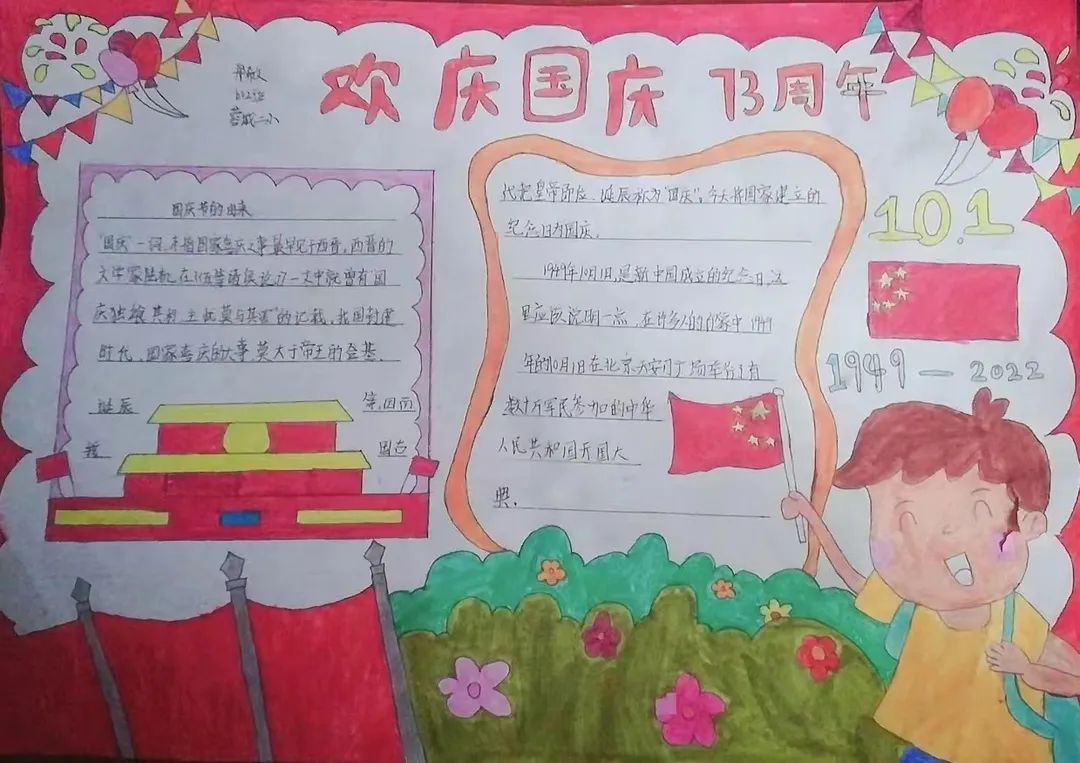 欢庆国庆 73周年
蓉城二小
国庆节的由来
"国庆"一词,本指国家喜庆之事最早见于西晋,西晋的
文学家陆机在《五等诸侯论》一文中就曾有"国
庆独飨其利,主忧莫与其害"的记载,我国封建
时代、国家喜庆的大事,莫大于帝王的登基、
诞辰
等,因而
我
国古
代把皇帝即位、诞辰称为"国庆",今天将国家建立的
纪念日为国庆.
1949年10月1日,是新中国成立的纪念日,这
里应该说明一点,在许多人的
1949
年的10月1日在北京天安门广场举行了有
数十万军民参加的中华
人民共和国开国大
典.
10.1
1949—2022